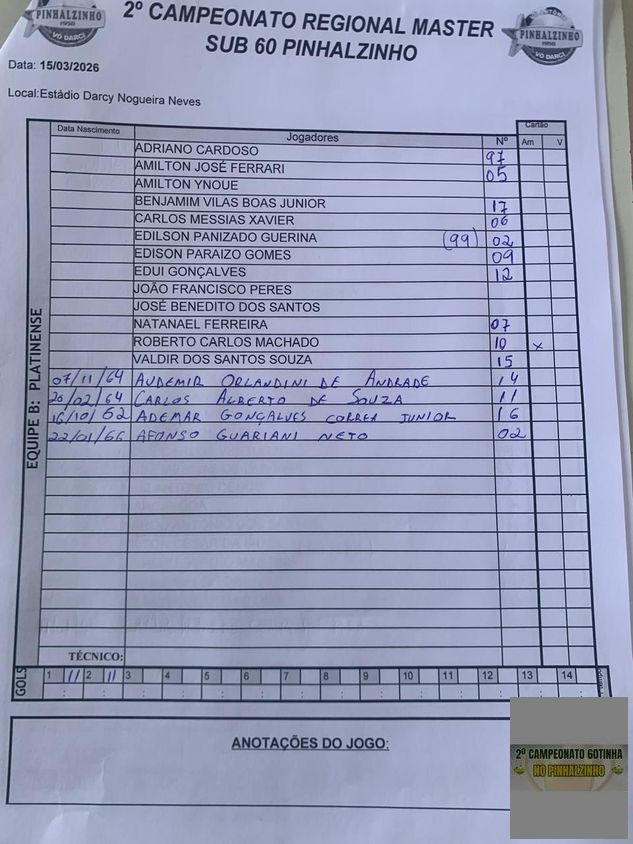 PINHALZINHO
1950
VÔ DARCI
2º CAMPEONATO REGIONAL MASTER
SUB 60 PINHALZINHO
PINHALZINHO
1950
VÔ DARCI
Data: 15/03/2026
Local:Estádio Darcy Nogueira Neves
EQUIPE B: PLATINENSE
Data Nascimento Jogadores Nº Cartão
Am V
ADRIANO CARDOSO 97
AMILTON JOSÉ FERRARI 05
AMILTON YNOUE
BENJAMIM VILAS BOAS JUNIOR 17
CARLOS MESSIAS XAVIER 06
EDILSON PANIZADO GUERINA (99) 02
EDISON PARAIZO GOMES 09
EDUI GONÇALVES 12
JOÃO FRANCISCO PERES
JOSÉ BENEDITO DOS SANTOS
NATANAEL FERREIRA 07
ROBERTO CARLOS MACHADO 10 x
VALDIR DOS SANTOS SOUZA 15
07/11/64 AUDEMIR ORLANDINI DE ANDRADE 14
20/02/64 CARLOS ALBERTO DE SOUZA 11
16/10/62 ADEMAR GONÇALVES CORREA JUNIOR 16
22/01/66 AFONSO GUARIANI NETO 02
TÉCNICO:
GOLS 1 11 2 11 3 4 5 6 7 8 9 10 11 12 13 14
ANOTAÇÕES DO JOGO:
2º CAMPEONATO 60TINHA
NO PINHALZINHO